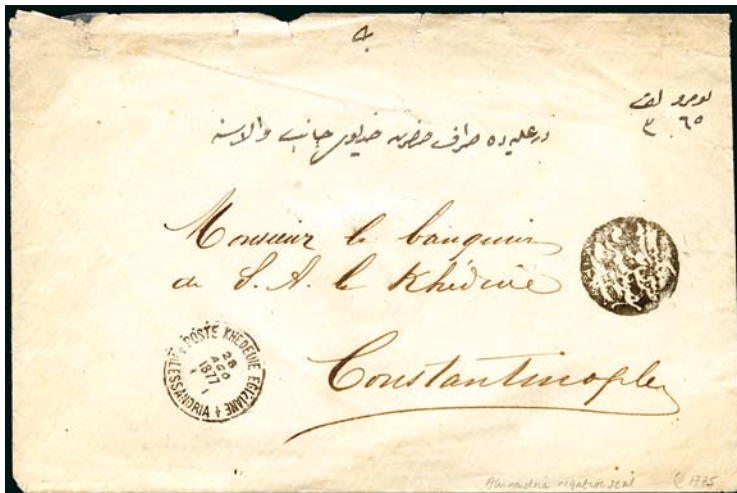 نومرو لف
٦٥ ٣
در عليه ده صراف حضرت خديوى جانب والاسنه
Monsieur le banquier
de S. A. le Khédive
Constantinople
POSTE KHEDEUIE EGIZIANE
28
AGO
1877
ALESSANDRIA
negative seal
1775